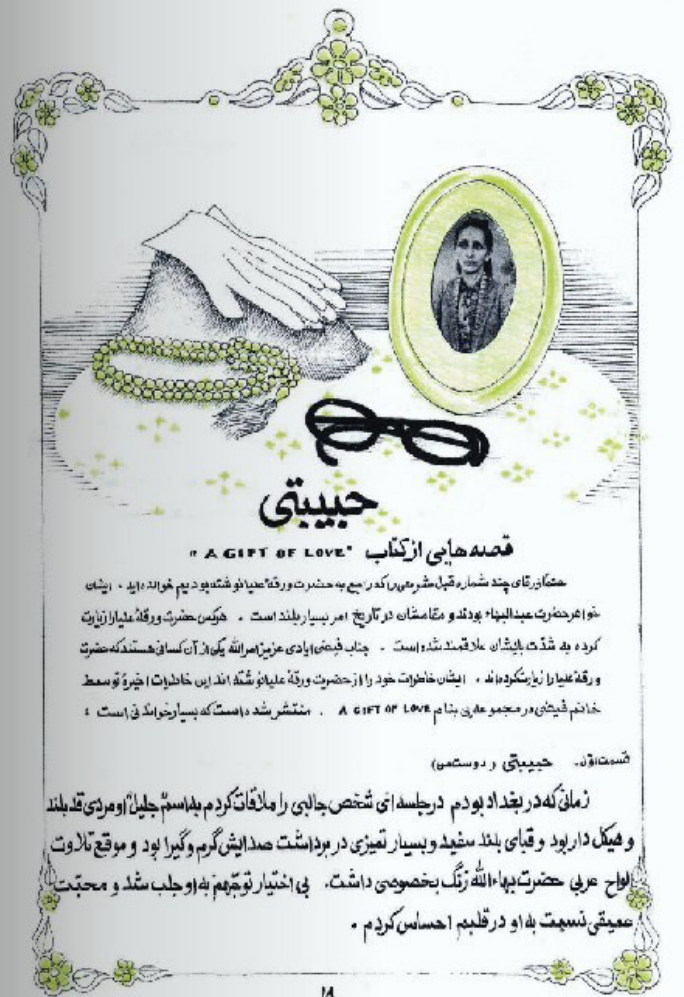 حبیبتی
قصه‌هایی از کتاب "A GIFT OF LOVE"
حتماً ورقای چند شماره قبل شرحی را که راجع به حضرت ورقهٔ علیا نوشته بودیم خوانده‌اید . ایشان
خواهر حضرت عبدالبهاء بودند و مقامشان در تاریخ امر بسیار بلند است . هرکس حضرت ورقهٔ علیا را زیارت
کرده به شدّت بایشان علاقمند شده است . جناب فیضی ایادی عزیز امرالله یکی از آن کسانی هستند که حضرت
ورقهٔ علیا را زیارت کرده‌اند . ایشان خاطرات خود را از حضرت ورقهٔ علیا نوشته اند این خاطرات اخیرهٔ توسط
خانم فیضی در مجموعه‌یی بنام A GIFT OF LOVE . منتشر شده است که بسیار خواندنی است :
قسمت اوّل - حبیبتی (دوست من)
زمانی که در بغداد بودم در جلسه ای شخص جالبی را ملاقات کردم به اسم جلیل او مردی قد بلند
و هیکل دار بود و قبای بلند سفید و بسیار تمیزی در برداشت صدایش گرم و گیرا بود و موقع تلاوت
الواح عربی حضرت بهاءالله زنگ بخصوصی داشت . بی اختیار توجّهم به او جلب شد و محبّت
عمیقی نسبت به او در قلبم احساس کردم .
۱۸